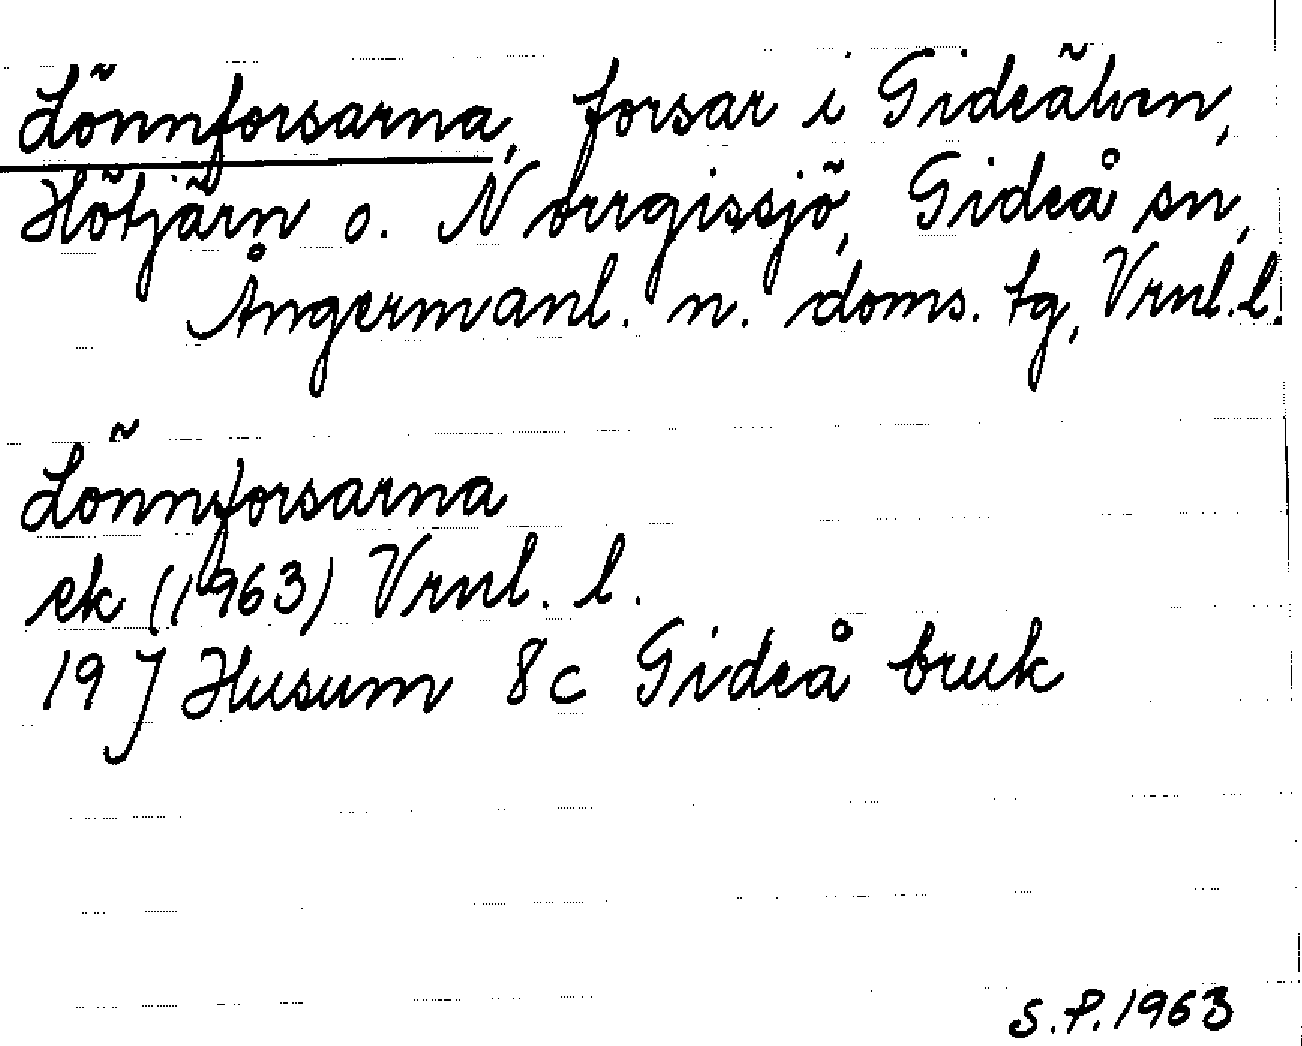 Lönnforsarna, forsar i Gideälven,
Hötjärn o. Norrgissjö, Gideå sn,
Ångermanl. n. doms. tg, Vrnl. l.
Lönnforsarna
ek (1963) Vrnl. l.
19 J Husum 8c Gideå bruk
S.P. 1963